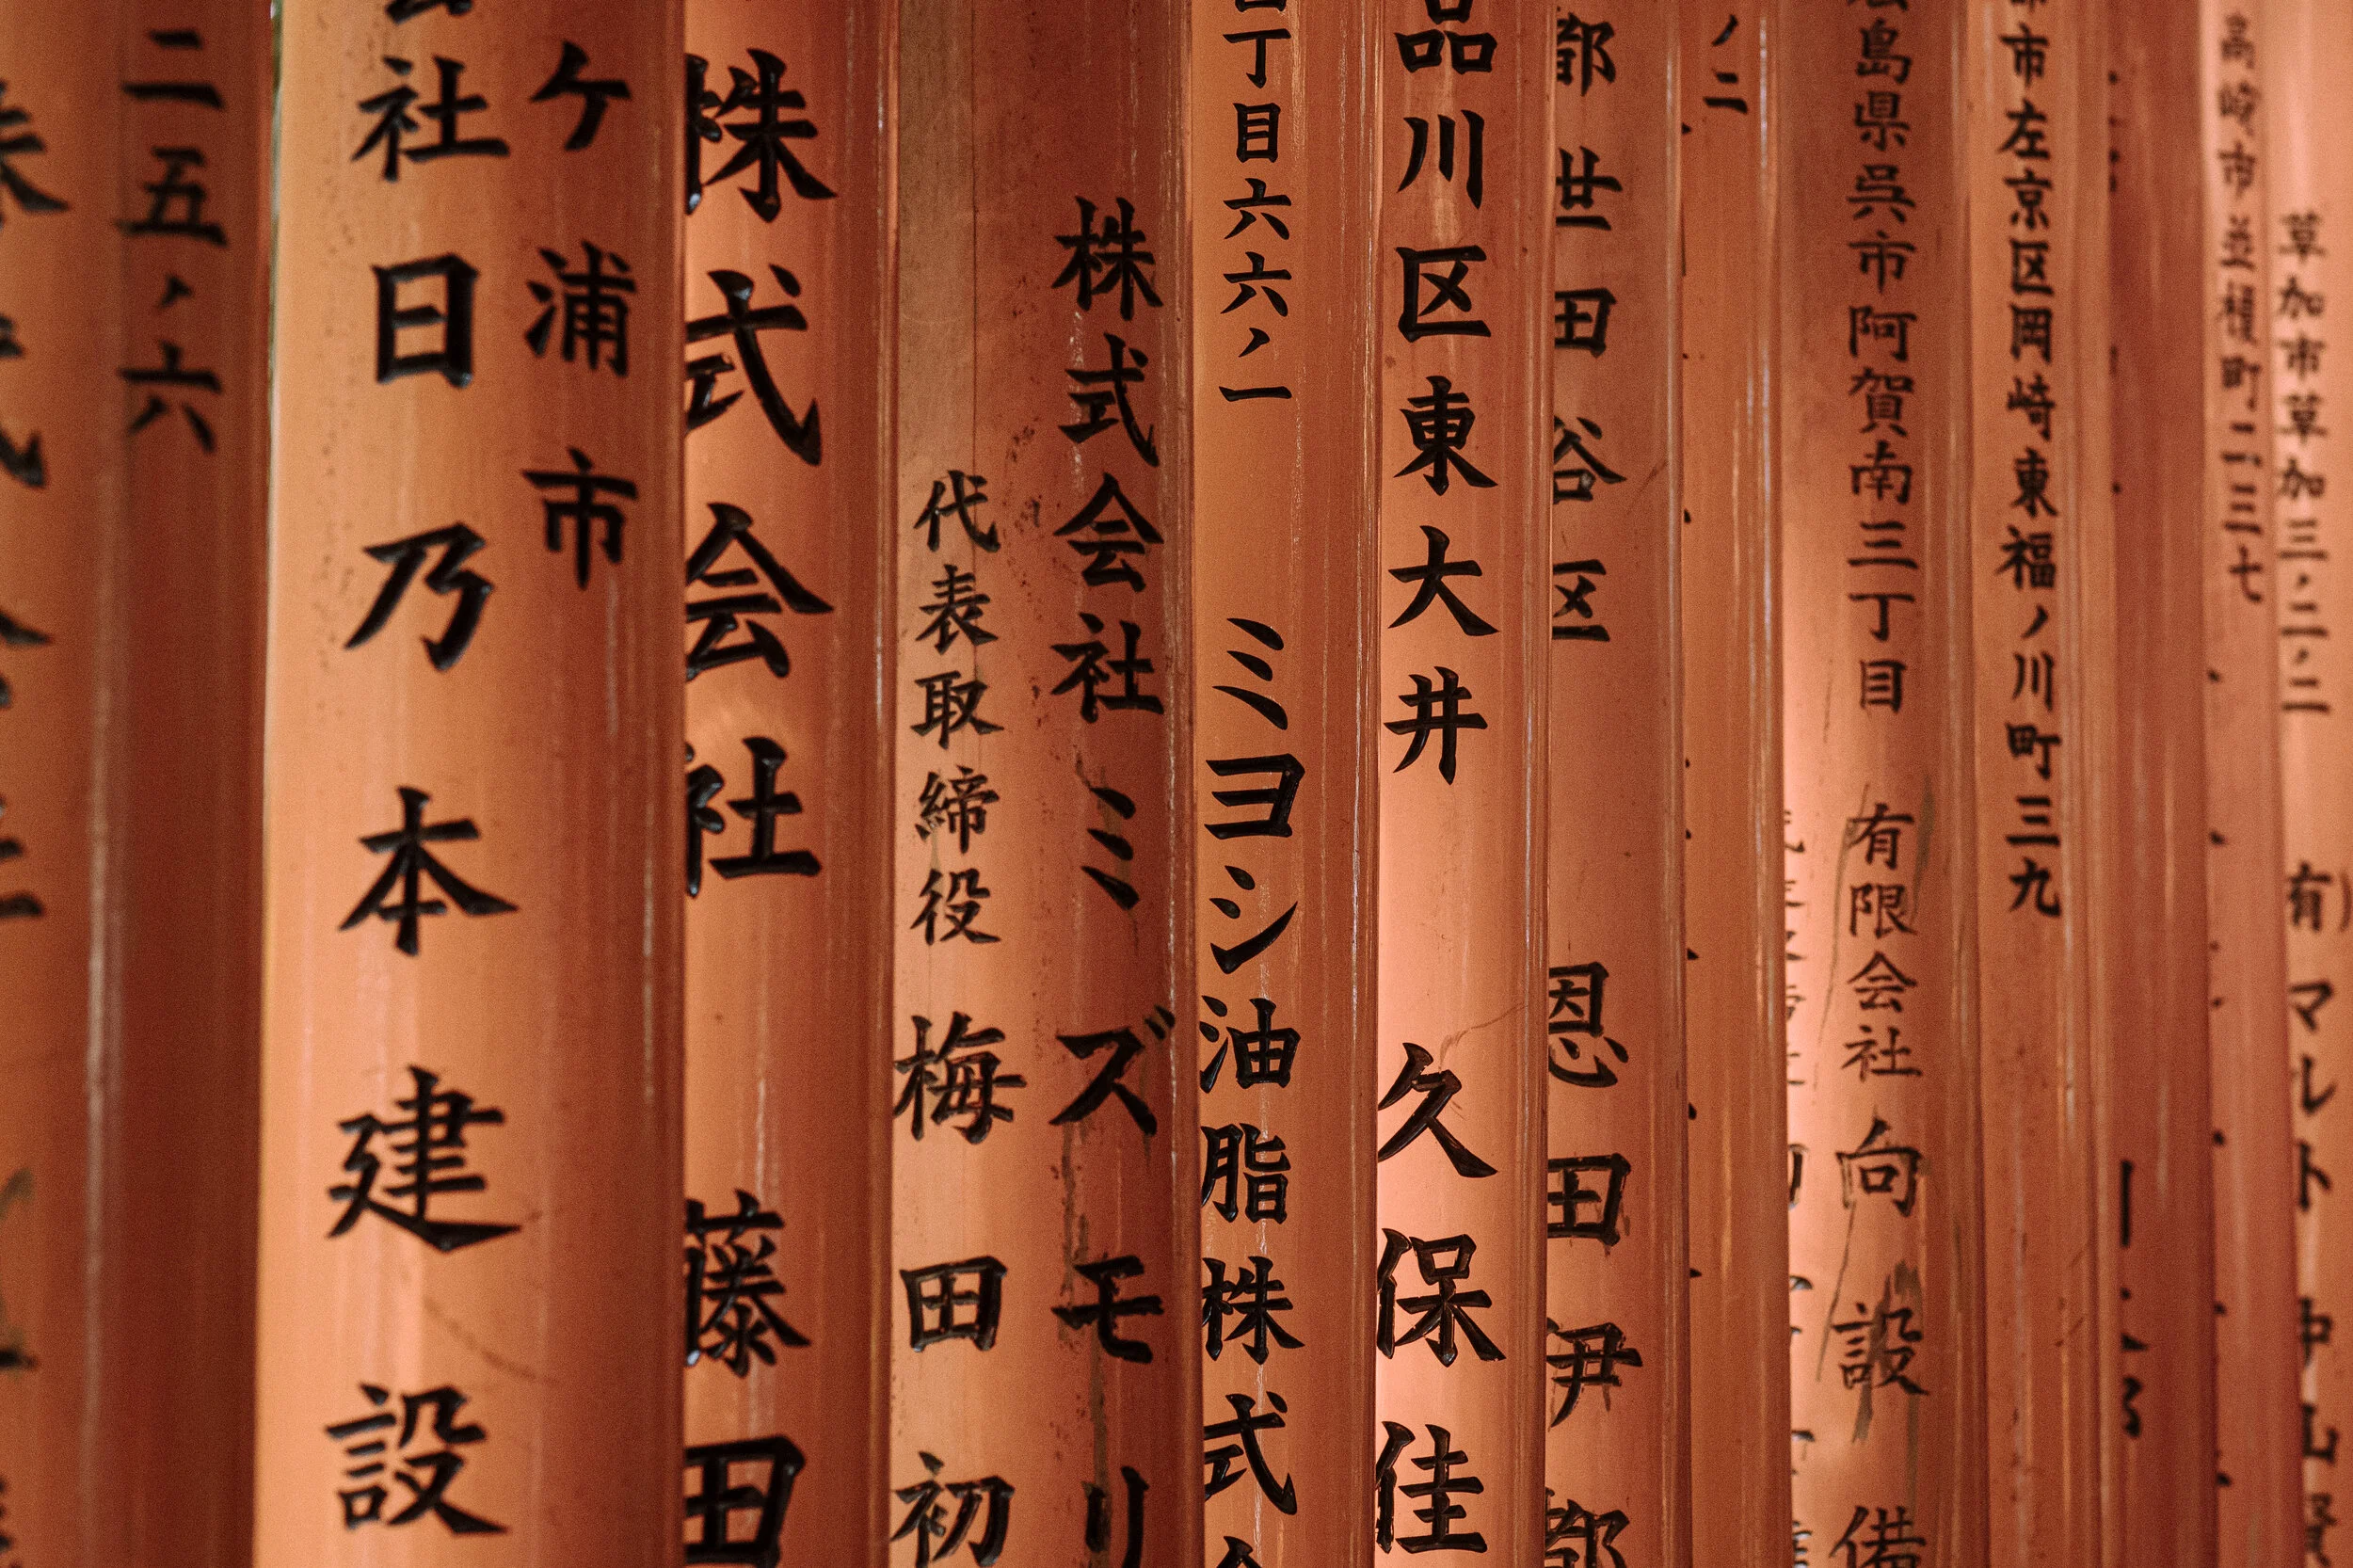 草加市草加三ノ二ノ二 有)マレト
高崎市並榎町二三七
市左京区岡崎東福ノ川町三九
島県呉市阿賀南三丁目 有限会社向設備
ノ二
都世田谷区 恩田伊都
品川区東大井 久保佳
丁目六六ノ一 ミヨシ油脂株式会
株式会社ミズモリ
代表取締役 梅田初
株式会社 藤田
ケ浦市
会社日乃本建設
二五ノ六
株式会社